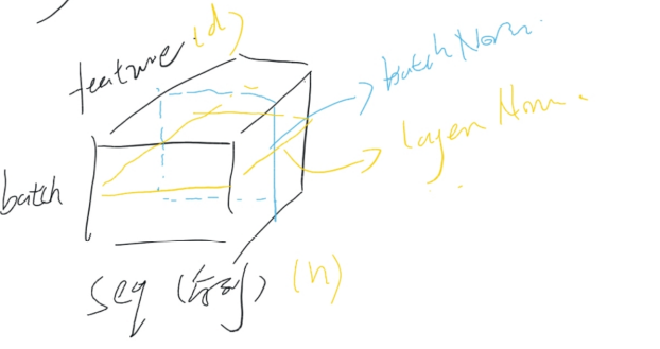 feature (d)
batch Norm.
layer Norm.
batch
seq (句子) (n)